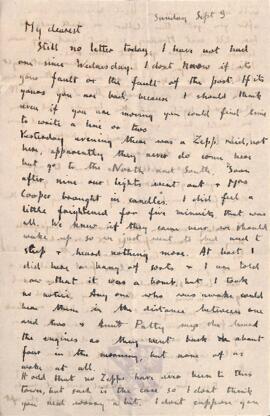 Sunday Sept 3
My dearest
Still no letter today. I have not had
one since Wednesday. I dont know if its
your fault or the fault of the post. If its
yours you are bad, because I should think
even if you are moving you could find time
to write a line or two
Yesterday evening there was a Zepp raid, not
here, apparently they never do come near
but go to the North and South. Soon
after nine our lights went out & Mrs
Cooper brought in candles. I did feel a
little frightened for five minutes that was
all. We knew if they came near we should
wake up so we just went to bed and to
sleep & heard nothing more. At least I
did hear a bang of sorts & I am told
now that it was a bomb, but I took
no notice. Any one who was awake could
hear them in the distance between one
and two & Aunt Patty says she heard
the engines as they went back at about
four in the morning, but none of us
woke at all.
that no Zepps have ever been to this
town, but such is the case so I dont think
you need worry a bit. I dont suppose you